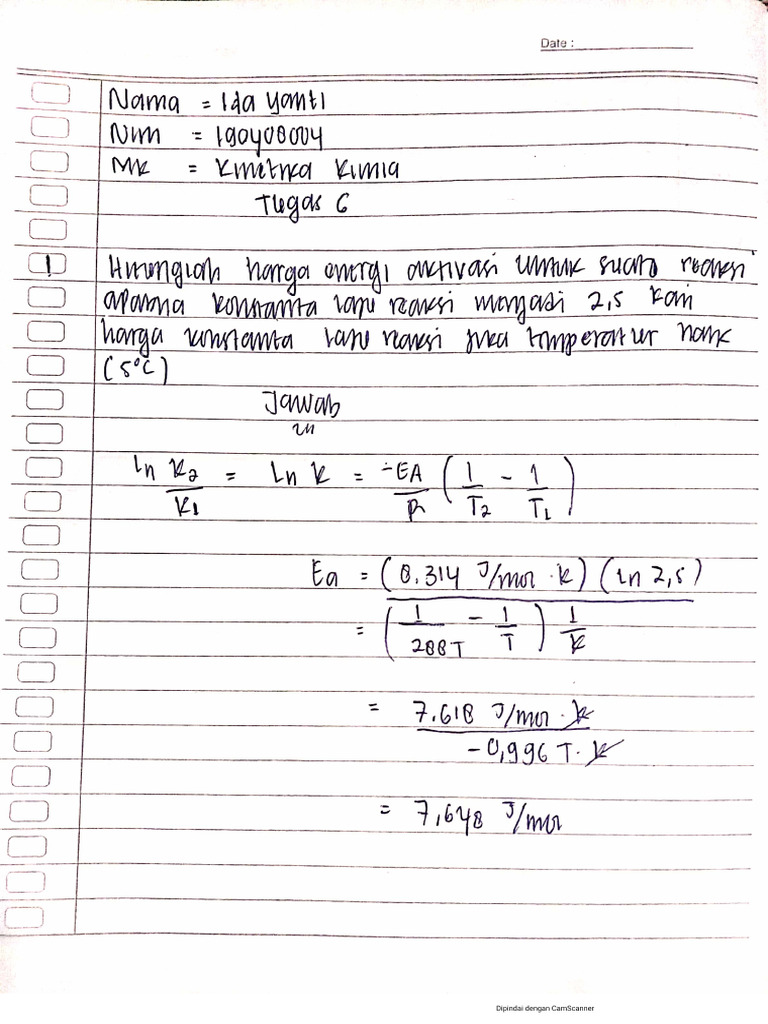 Date :
Nama = Ida Yanti
Nim = 190408004
Mk = Kinetika Kimia
Tugas 6
1 Hitunglah harga energi aktivasi untuk suatu reaksi
apabila konstanta laju reaksi menjadi 2,5 kali
harga konstanta laju reaksi jika temperatur naik
(5°C)
Jawab
ln K2/K1 = Ln K = -EA/R (1/T2 - 1/T1)
Ea = (8.314 J/mol · K) (ln 2,5)
= (1/288T - 1/T) 1/K
= 7.618 J/mol · K
-0,996 T · K
= 7,648 J/mol
Dipindai dengan CamScanner